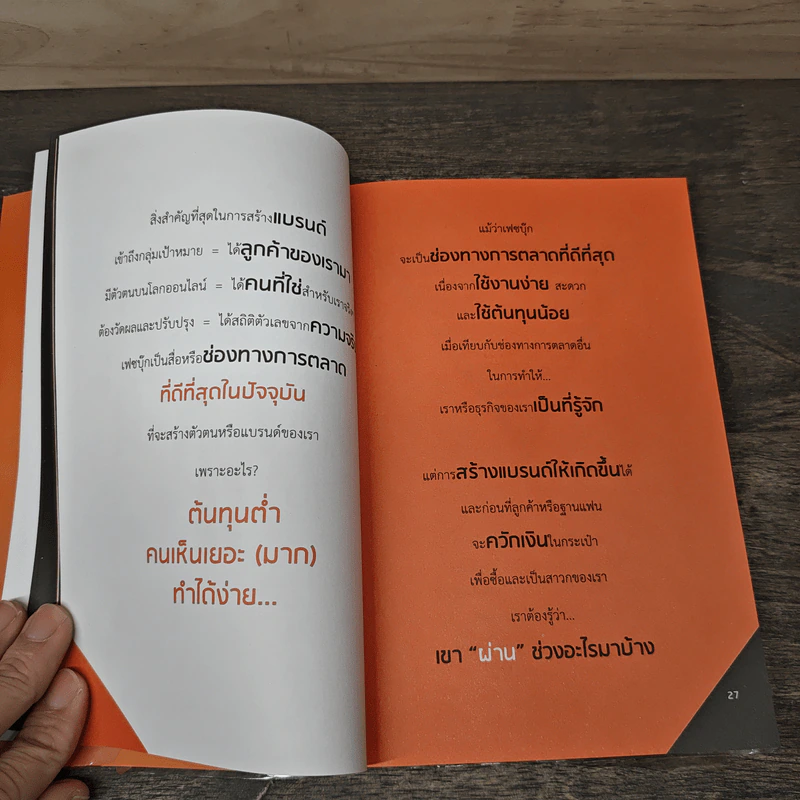 สิ่งสำคัญที่สุดในการสร้างแบรนด์
เข้าถึงกลุ่มเป้าหมาย = ได้ลูกค้าของเรามา
มีตัวตนบนโลกออนไลน์ = ได้คนที่ใช่สำหรับเรา
ต้องวัดผลและปรับปรุง = ได้สถิติตัวเลขจาก
เฟซบุ๊กเป็นสื่อหรือช่องทางการตลาด
ที่ดีที่สุดในปัจจุบัน
ที่จะสร้างตัวตนหรือแบรนด์ของเรา
เพราะอะไร?
ต้นทุนต่ำ
คนเห็นเยอะ (มาก)
ทำได้ง่าย...
แม้ว่าเฟซบุ๊ก
จะเป็นช่องทางการตลาดที่ดีที่สุด
เนื่องจากใช้งานง่าย สะดวก
และใช้ต้นทุนน้อย
เมื่อเทียบกับช่องทางการตลาดอื่น
ในการทำให้...
เราหรือธุรกิจของเราเป็นที่รู้จัก
แต่การสร้างแบรนด์ให้เกิดขึ้นได้
และก่อนที่ลูกค้าหรือฐานแฟน
จะควักเงินในกระเป๋า
เพื่อซื้อและเป็นสาวกของเรา
เราต้องรู้ว่า...
เขา “ผ่าน” ช่วงอะไรมาบ้าง
27